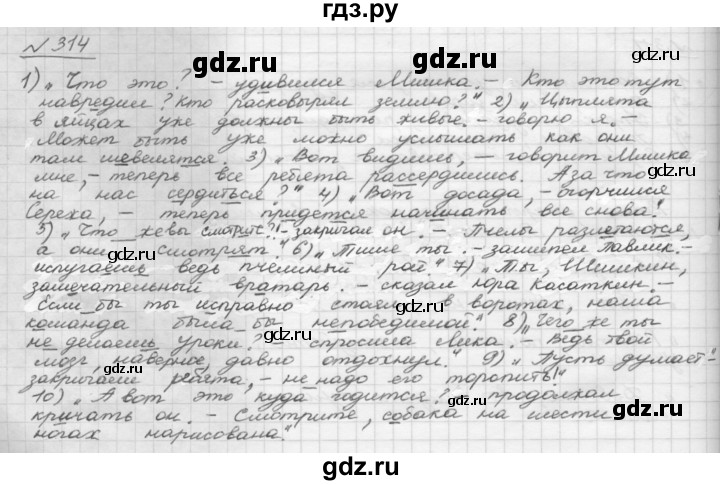 гдз.ру
№ 314
1) „Что это? – удивился Мишка. – Кто это тут
навредил? Кто расковырял землю?" 2) „Цыплята
в яйцах уже должны быть живые. – говорю я. –
Может быть уже можно услышать как они
там шевелятся. 3) „Вот видишь, – говорит Мишка
мне, – теперь все ребята рассердились. А за что
на нас сердиться?" 4) „Вот досада, – огорчился
Сережа, – теперь придется начинать все снова."
5) „Что же вы смотрите?! – закричал он. – Пчелы разлетаются,
а они смотрят." 6) „Тише ты. – зашипел Павлик. –
испугаешь ведь пчелиный рой." 7) „Ты, Шишкин,
замечательный вратарь. – сказал Юра Касаткин. –
Если бы ты исправно стоял в воротах, наша
команда была бы непобедимой." 8) „Чего же ты
не делаешь уроки? – спросила Лика. – Ведь твой
мозг, наверное, давно отдохнул." 9) „Пусть думает" –
закричали ребята, – не надо его торопить!"
10) „А вот это куда годится? – продолжал
кричать он. – Смотрите, собака на шести
ногах нарисована."
gdz.ru
gdz.ru
gdz.ru
gdz.ru
gdz.ru
gdz.ru
gdz.ru
gdz.ru
gdz.ru
gdz.ru
gdz.ru
gdz.ru
gdz.ru
gdz.ru